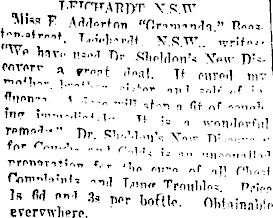 LEICHARDT N.S.W.
Miss E. Adderton "Gramanda,"
street, Leichardt, N.S.W., writes:
"We have used Dr Sheldon's New Dis-
covery a great deal. It cured my
mother, brother sister and self of in-
fluenza. A dose will stop a fit of cough-
ing immediately. It is a wonderful
remedy." Dr. Sheldon's New Discovery
for Coughs and Colds is an unequalled
preparation for the cure of all Chest
Complaints and Lung Troubles. Price
Is 6d and 3s per bottle. Obtainable
everywhere.